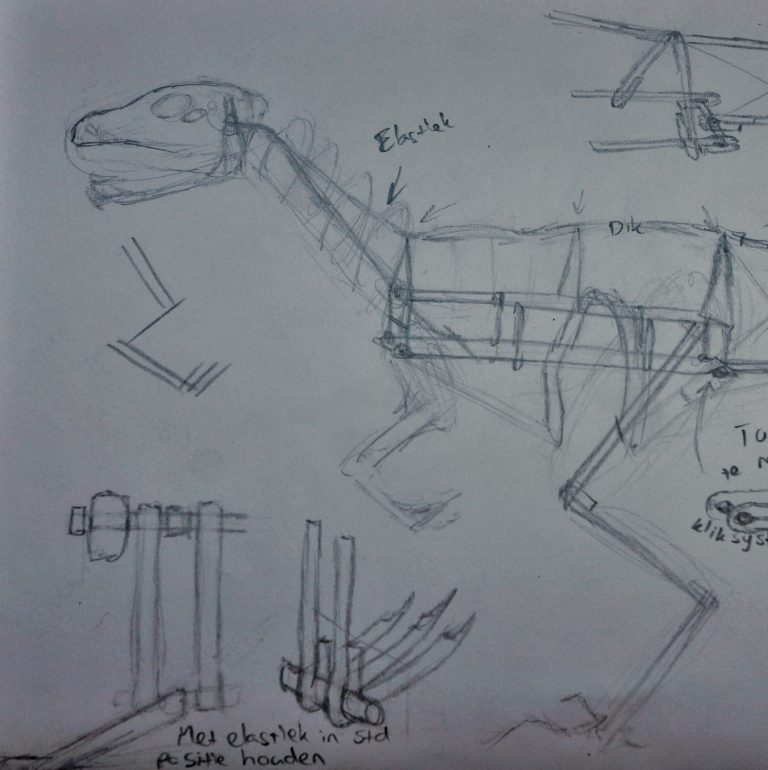 Elastiek
Dik
To
te
kliksyst
Met elastiek in std
positie houden